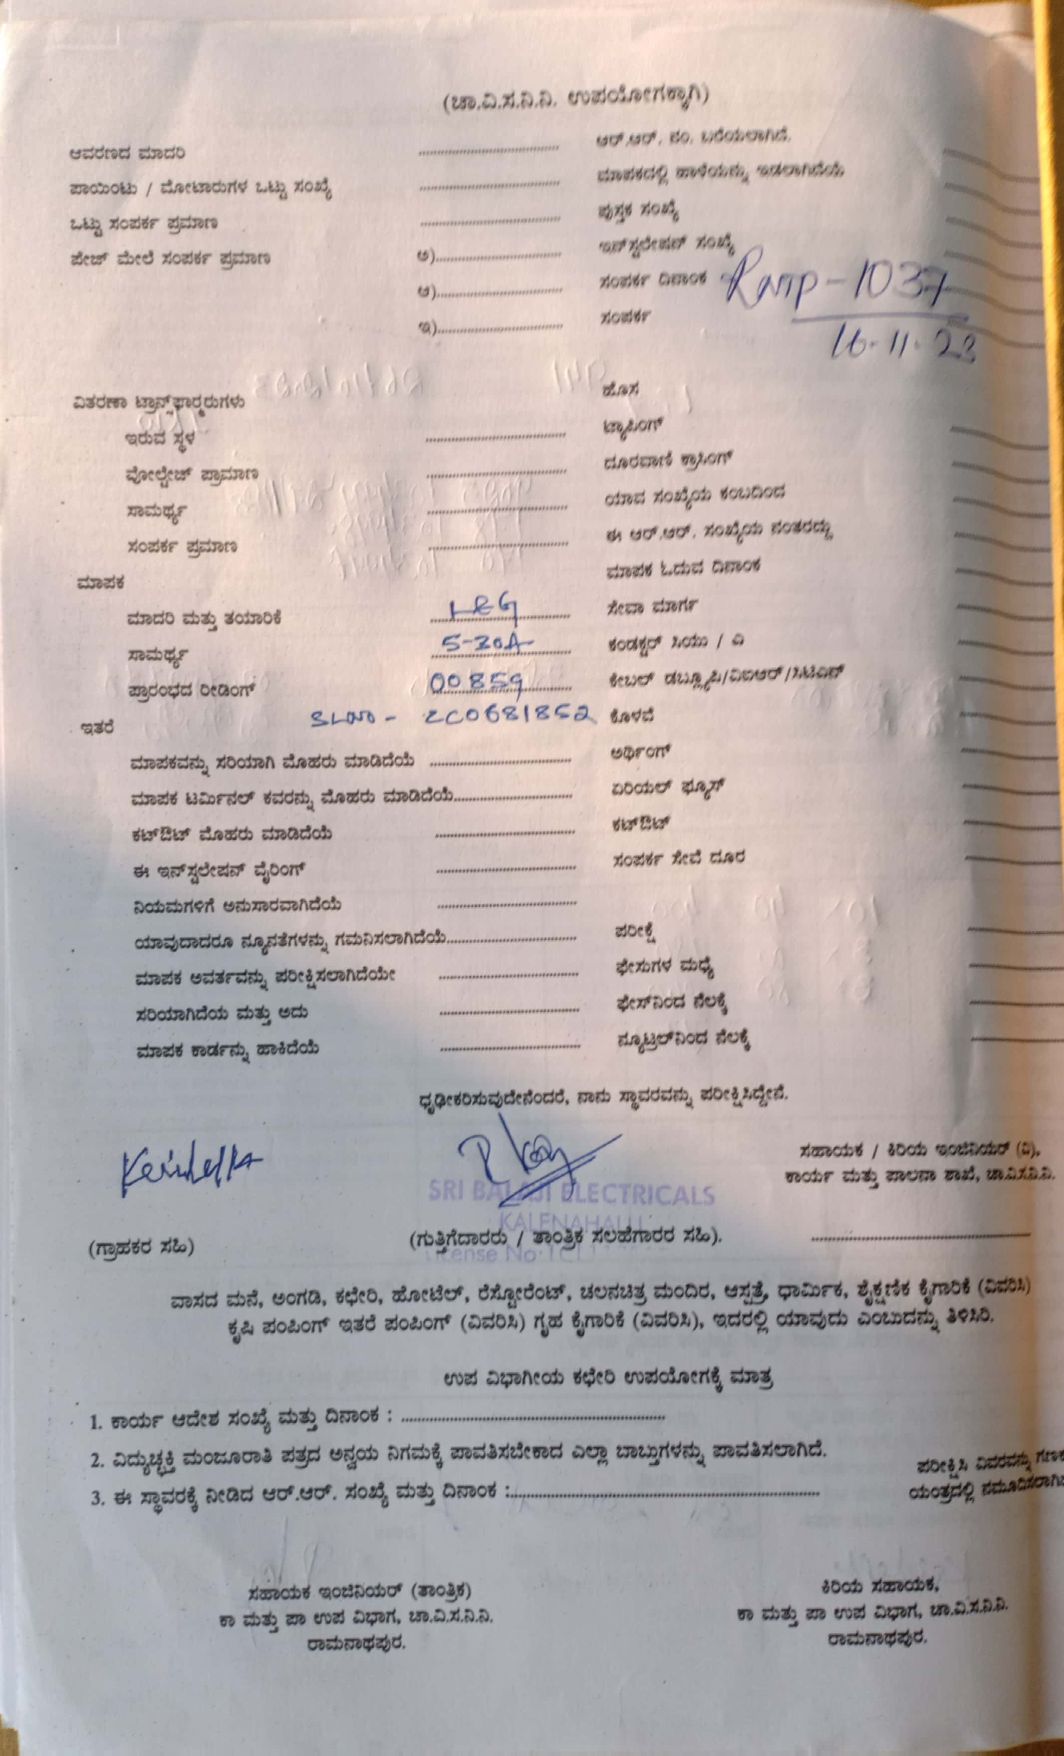 (ಚಾ.ವಿ.ಸ.ನಿ.ನಿ. ಉಪಯೋಗಕ್ಕಾಗಿ)
ಆವರಣದ ಮಾದರಿ ........................
ಪಾಯಿಂಟು / ಮೋಟಾರುಗಳ ಒಟ್ಟು ಸಂಖ್ಯೆ ........................
ಒಟ್ಟು ಸಂಪರ್ಕ ಪ್ರಮಾಣ ........................
ಪೇಜ್ ಮೇಲೆ ಸಂಪರ್ಕ ಪ್ರಮಾಣ ಅ)........................
ಆ)........................
ಇ)........................
ಆರ್.ಆರ್. ನಂ. ಬರೆಯಲಾಗಿದೆ.
ಮಾಪಕದಲ್ಲಿ ಹಾಳೆಯನ್ನು ಇಡಲಾಗಿದೆಯೆ
ಪುಸ್ತಕ ಸಂಖ್ಯೆ
ಇನ್‌ಸ್ಟಲೇಷನ್ ಸಂಖ್ಯೆ
ಸಂಪರ್ಕ ದಿನಾಂಕ RNTP-1037
ಸಂಪರ್ಕ 16.11.23
ವಿತರಣಾ ಟ್ರಾನ್ಸ್‌ಫಾರ್‍ಮರುಗಳು
ಇರುವ ಸ್ಥಳ ........................
ವೋಲ್ಟೇಜ್ ಪ್ರಾಮಾಣ ........................
ಸಾಮರ್ಥ್ಯ ........................
ಸಂಪರ್ಕ ಪ್ರಮಾಣ ........................
ಮಾಪಕ
ಮಾದರಿ ಮತ್ತು ತಯಾರಿಕೆ L&G
ಸಾಮರ್ಥ್ಯ 5-30A
ಪ್ರಾರಂಭದ ರೀಡಿಂಗ್ 00859
ಇತರೆ SLNO - ZC0681852
ಮಾಪಕವನ್ನು ಸರಿಯಾಗಿ ಮೊಹರು ಮಾಡಿದೆಯೆ ........................
ಮಾಪಕ ಟರ್ಮಿನಲ್ ಕವರನ್ನು ಮೊಹರು ಮಾಡಿದೆಯೆ........................
ಕಟ್‌ಔಟ್ ಮೊಹರು ಮಾಡಿದೆಯೆ ........................
ಈ ಇನ್‌ಸ್ಟಲೇಷನ್ ವೈರಿಂಗ್ ........................
ನಿಯಮಗಳಿಗೆ ಅನುಸಾರವಾಗಿದೆಯೆ ........................
ಯಾವುದಾದರೂ ನ್ಯೂನತೆಗಳನ್ನು ಗಮನಿಸಲಾಗಿದೆಯೆ........................
ಮಾಪಕ ಅವರ್ತವನ್ನು ಪರೀಕ್ಷಿಸಲಾಗಿದೆಯೇ ........................
ಸರಿಯಾಗಿದೆಯ ಮತ್ತು ಅದು ........................
ಮಾಪಕ ಕಾರ್ಡನ್ನು ಹಾಕಿದೆಯೆ ........................
ಹೊಸ
ಟ್ಯಾಪಿಂಗ್
ದೂರವಾಣಿ ಕ್ರಾಸಿಂಗ್
ಯಾವ ಸಂಖ್ಯೆಯ ಕಂಬದಿಂದ
ಈ ಆರ್.ಆರ್. ಸಂಖ್ಯೆಯ ನಂತರದ್ದು
ಮಾಪಕ ಓದುವ ದಿನಾಂಕ
ಸೇವಾ ಮಾರ್ಗ
ಕಂಡಕ್ಟರ್ ಸಿಯು / ವಿ
ಕೇಬಲ್ ಡಬ್ಲ್ಯೂಪಿ/ವಿಐಆರ್/ಸಿಟಿಎಸ್
ಕೊಳವೆ
ಅರ್ಥಿಂಗ್
ಏರಿಯಲ್ ಫ್ಯೂಸ್
ಕಟ್‌ಔಟ್
ಸಂಪರ್ಕ ಸೇವೆ ದೂರ
ಪರೀಕ್ಷೆ
ಫೇಸುಗಳ ಮಧ್ಯೆ
ಫೇಸ್‌ನಿಂದ ನೆಲಕ್ಕೆ
ನ್ಯೂಟ್ರಲ್‌ನಿಂದ ನೆಲಕ್ಕೆ
ಧೃಢೀಕರಿಸುವುದೇನೆಂದರೆ, ನಾನು ಸ್ಥಾವರವನ್ನು ಪರೀಕ್ಷಿಸಿದ್ದೇನೆ.
ಸಹಾಯಕ / ಕಿರಿಯ ಇಂಜಿನಿಯರ್ (ವಿ),
ಕಾರ್ಯ ಮತ್ತು ಪಾಲನಾ ಶಾಖೆ, ಚಾ.ವಿ.ಸ.ನಿ.ನಿ.
SRI BALAJI ELECTRICALS
KALENAHALLI
License No
(ಗ್ರಾಹಕರ ಸಹಿ) (ಗುತ್ತಿಗೆದಾರರು / ತಾಂತ್ರಿಕ ಸಲಹೆಗಾರರ ಸಹಿ). ........................
ವಾಸದ ಮನೆ, ಅಂಗಡಿ, ಕಛೇರಿ, ಹೋಟೆಲ್, ರೆಸ್ಟೋರೆಂಟ್, ಚಲನಚಿತ್ರ ಮಂದಿರ, ಆಸ್ಪತ್ರೆ, ಧಾರ್ಮಿಕ, ಶೈಕ್ಷಣಿಕ ಕೈಗಾರಿಕೆ (ವಿವರಿಸಿ)
ಕೃಷಿ ಪಂಪಿಂಗ್ ಇತರೆ ಪಂಪಿಂಗ್ (ವಿವರಿಸಿ) ಗೃಹ ಕೈಗಾರಿಕೆ (ವಿವರಿಸಿ), ಇದರಲ್ಲಿ ಯಾವುದು ಎಂಬುದನ್ನು ತಿಳಿಸಿರಿ.
ಉಪ ವಿಭಾಗೀಯ ಕಛೇರಿ ಉಪಯೋಗಕ್ಕೆ ಮಾತ್ರ
1. ಕಾರ್ಯ ಆದೇಶ ಸಂಖ್ಯೆ ಮತ್ತು ದಿನಾಂಕ : ........................
2. ವಿದ್ಯುಚ್ಛಕ್ತಿ ಮಂಜೂರಾತಿ ಪತ್ರದ ಅನ್ವಯ ನಿಗಮಕ್ಕೆ ಪಾವತಿಸಬೇಕಾದ ಎಲ್ಲಾ ಬಾಬ್ತುಗಳನ್ನು ಪಾವತಿಸಲಾಗಿದೆ.
3. ಈ ಸ್ಥಾವರಕ್ಕೆ ನೀಡಿದ ಆರ್.ಆರ್. ಸಂಖ್ಯೆ ಮತ್ತು ದಿನಾಂಕ :........................
ಪರೀಕ್ಷಿಸಿ ವಿವರವನ್ನು
ಯಂತ್ರದಲ್ಲಿ
ಸಹಾಯಕ ಇಂಜಿನಿಯರ್ (ತಾಂತ್ರಿಕ)
ಕಾ ಮತ್ತು ಪಾ ಉಪ ವಿಭಾಗ, ಚಾ.ವಿ.ಸ.ನಿ.ನಿ.
ರಾಮನಾಥಪುರ.
ಕಿರಿಯ ಸಹಾಯಕ,
ಕಾ ಮತ್ತು ಪಾ ಉಪ ವಿಭಾಗ, ಚಾ.ವಿ.ಸ.ನಿ.ನಿ.
ರಾಮನಾಥಪುರ.